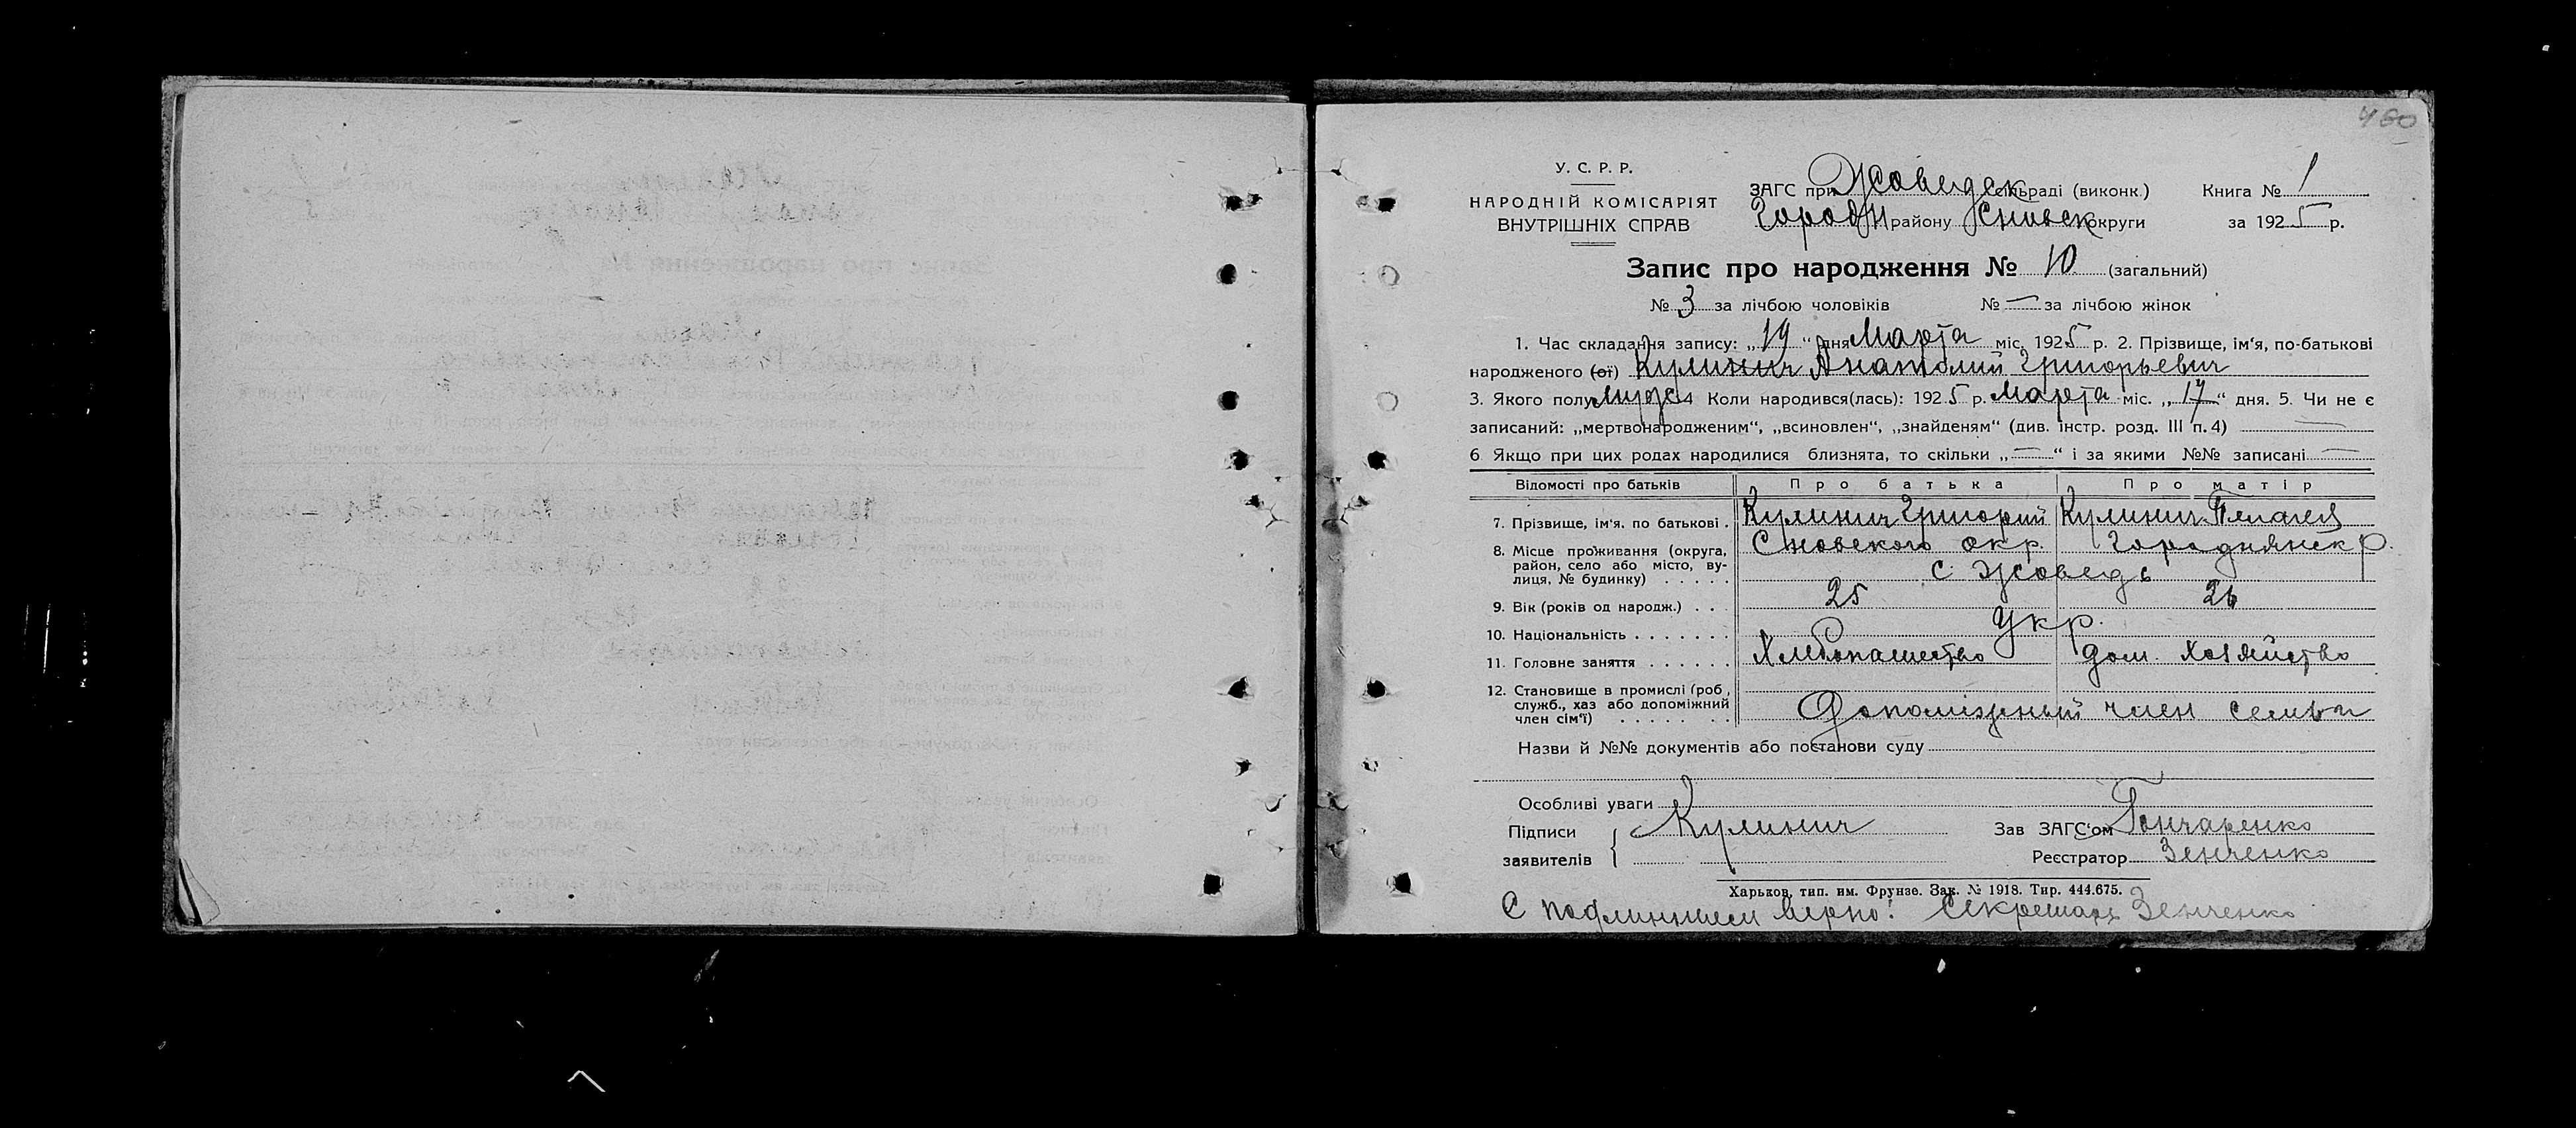 460
У. С. Р. Р.
НАРОДНІЙ КОМІСАРІЯТ
ВНУТРІШНІХ СПРАВ
ЗАГС при Жоведск сільраді (виконк.) Книга № 1
Городн району Сновск округи за 1925 р.
Запис про народження № 10 (загальний)
№ 3 за лічбою чоловіків № — за лічбою жінок
1. Час складання запису: „19“ дня Марта міс. 1925 р. 2. Прізвище, ім‘я, по-батькові
народженого (ої) Кулинич Анатолий Григорьевич
3. Якого полу Мужс 4 Коли народився(лась): 1925 р. Марта міс. „17“ дня. 5. Чи не є
записаний: „мертвонародженим“, „всиновлен“, „знайденям“ (див. інстр. розд. III п. 4) —
6 Якщо при цих родах народилися близнята, то скільки „—“ і за якими №№ записані —
Відомості про батьків Про батька Про матір
7. Прізвище, ім‘я. по батькові . Кулинич Григорий Кулинич Пелагея
8. Місце проживання (округа, Сновского окр. Городнянск р.
район, село або місто, ву-
лиця, № будинку) . . . . . с. Жоведь
9. Вік (років од народж.) . . 25 26
10. Національність . . . . . . . Укр.
11. Головне заняття . . . . . . Хлебопашество дом. хозяйство
12. Становище в промислі (роб,
служб., хаз або допоміжний
член сім‘ї) . . . . . . . . Допоміжный член семьи
Назви й №№ документів або постанови суду
Особливі уваги
Підписи
заявителів
Кулинич
Зав ЗАГС‘ом Гончаренко
Реєстратор Зенченко
Харьков, тип. им. Фрунзе. Зак. № 1918. Тир. 444.675.
С подлинным верно! Секретарь Зенченко